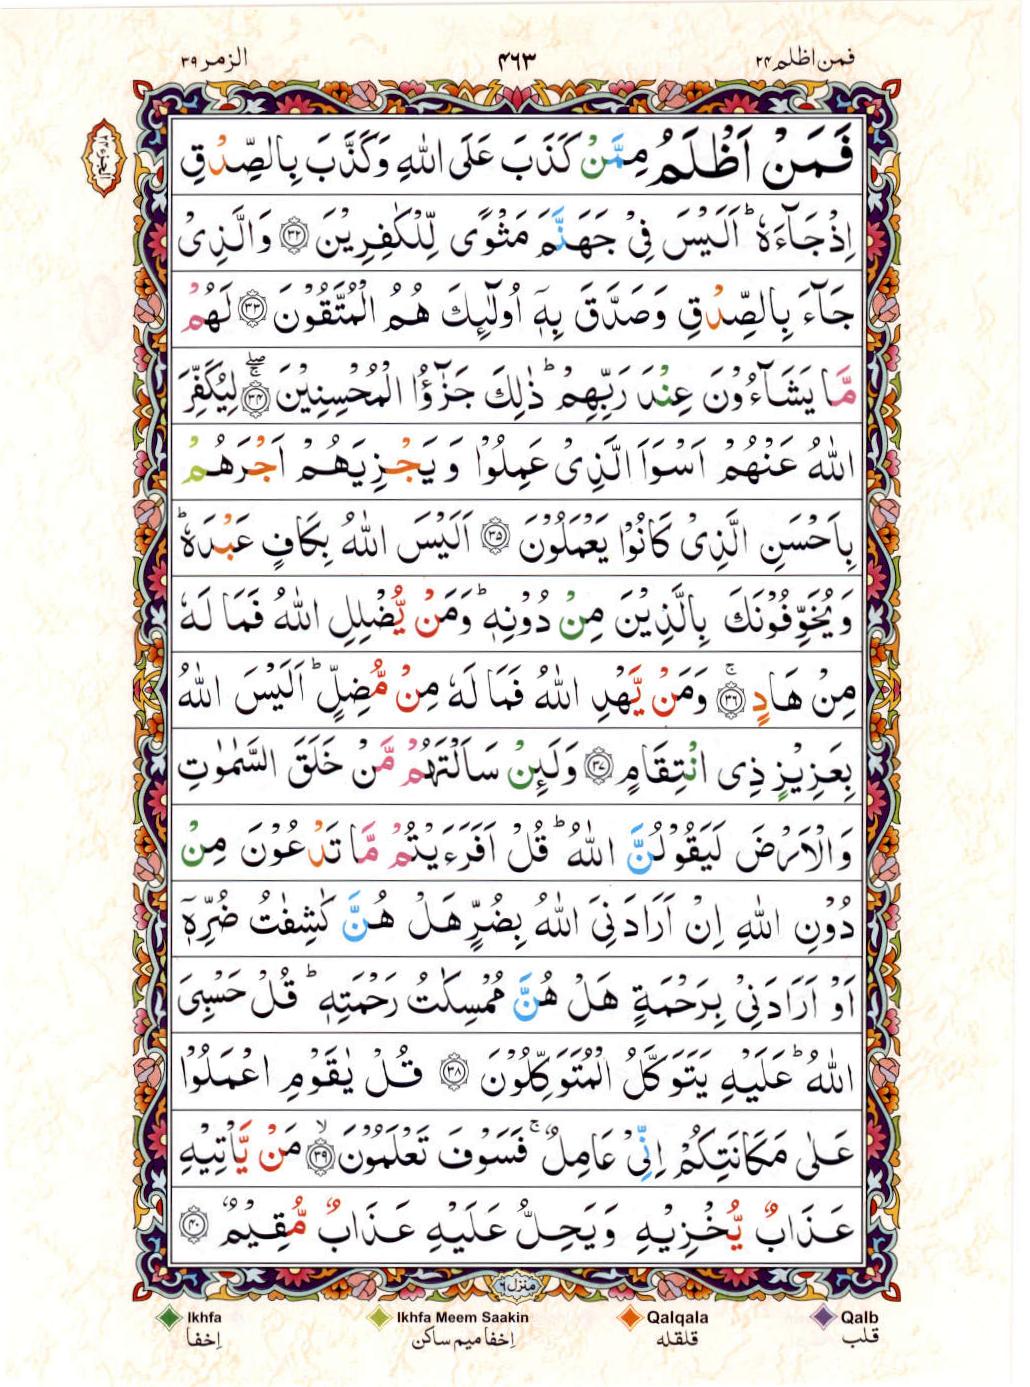 فمن اظلم ۲۴
۴۶۳
الزمر ۳۹
الجزء ۲۴
فَمَنْ اَظْلَمُ مِمَّنْ كَذَبَ عَلَى اللّٰهِ وَكَذَّبَ بِالصِّدْقِ
اِذْجَآءَهٗ ؕ اَلَیْسَ فِیْ جَهَنَّمَ مَثْوًی لِّلْكٰفِرِیْنَ ۝۳۲ وَالَّذِیْ
جَآءَ بِالصِّدْقِ وَصَدَّقَ بِهٖۤ اُولٰٓئِكَ هُمُ الْمُتَّقُوْنَ ۝۳۳ لَهُمْ
مَّا یَشَآءُوْنَ عِنْدَ رَبِّهِمْ ؕ ذٰلِكَ جَزٰٓؤُا الْمُحْسِنِیْنَ ۝۳۴ۚۖ لِیُكَفِّرَ
اللّٰهُ عَنْهُمْ اَسْوَاَ الَّذِیْ عَمِلُوْا وَیَجْزِیَهُمْ اَجْرَهُمْ
بِاَحْسَنِ الَّذِیْ كَانُوْا یَعْمَلُوْنَ ۝۳۵ اَلَیْسَ اللّٰهُ بِكَافٍ عَبْدَهٗ ؕ
وَیُخَوِّفُوْنَكَ بِالَّذِیْنَ مِنْ دُوْنِهٖ ؕ وَمَنْ یُّضْلِلِ اللّٰهُ فَمَا لَهٗ
مِنْ هَادٍ ۝۳۶ۚ وَمَنْ یَّهْدِ اللّٰهُ فَمَا لَهٗ مِنْ مُّضِلٍّ ؕ اَلَیْسَ اللّٰهُ
بِعَزِیْزٍ ذِی انْتِقَامٍ ۝۳۷ وَلَئِنْ سَاَلْتَهُمْ مَّنْ خَلَقَ السَّمٰوٰتِ
وَالْاَرْضَ لَیَقُوْلُنَّ اللّٰهُ ؕ قُلْ اَفَرَءَیْتُمْ مَّا تَدْعُوْنَ مِنْ
دُوْنِ اللّٰهِ اِنْ اَرَادَنِیَ اللّٰهُ بِضُرٍّ هَلْ هُنَّ كٰشِفٰتُ ضُرِّهٖۤ
اَوْ اَرَادَنِیْ بِرَحْمَةٍ هَلْ هُنَّ مُمْسِكٰتُ رَحْمَتِهٖ ؕ قُلْ حَسْبِیَ
اللّٰهُ ؕ عَلَیْهِ یَتَوَكَّلُ الْمُتَوَكِّلُوْنَ ۝۳۸ قُلْ یٰقَوْمِ اعْمَلُوْا
عَلٰی مَكَانَتِكُمْ اِنِّیْ عَامِلٌ ۚ فَسَوْفَ تَعْلَمُوْنَ ۝۳۹ۙ مَنْ یَّاْتِیْهِ
عَذَابٌ یُّخْزِیْهِ وَیَحِلُّ عَلَیْهِ عَذَابٌ مُّقِیْمٌ ۝۴۰
منزل ۶
Ikhfa Ikhfa Meem Saakin Qalqala Qalb
اِخفا اِخفا میم ساکن قلقله قلب